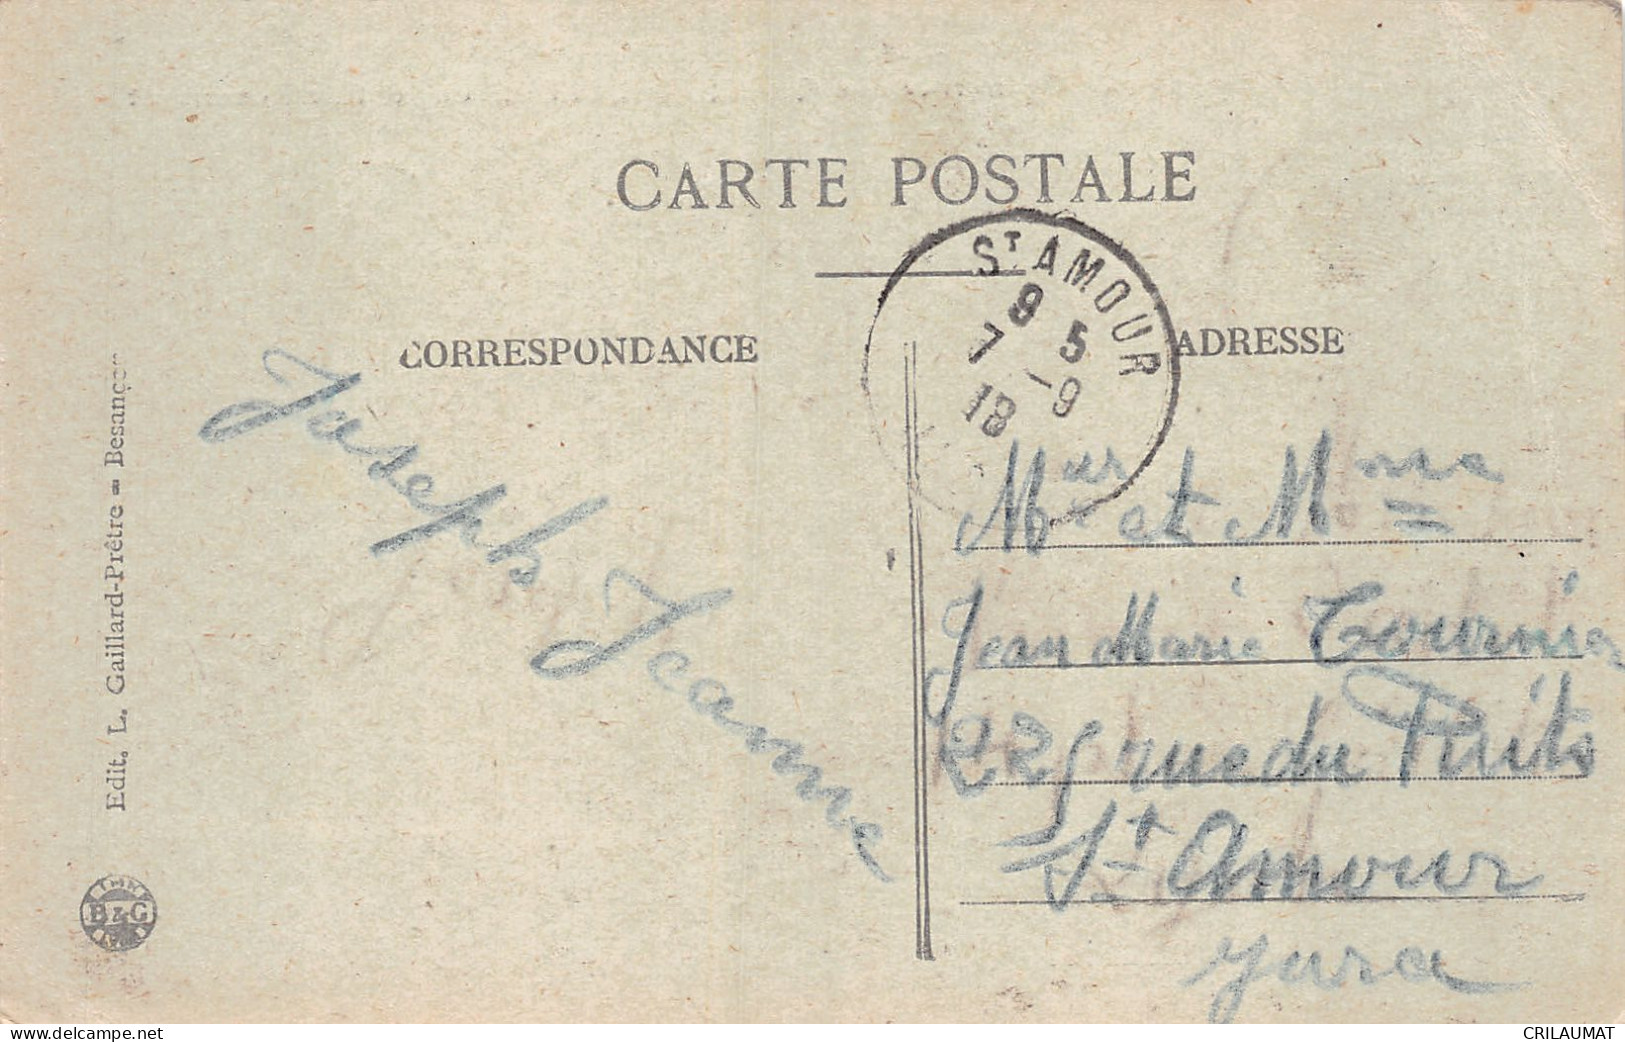 CARTE POSTALE
ST AMOUR
9 5
7 -9
18
CORRESPONDANCE
ADRESSE
Joseph Jeanne
Mur et Mme
Jean Marie Tournier
22 rue du Puits
St Amour
Jura
Edit. L. Gaillard-Prêtre = Besanço
B & G
www.delcampe.net
CRILAUMAT